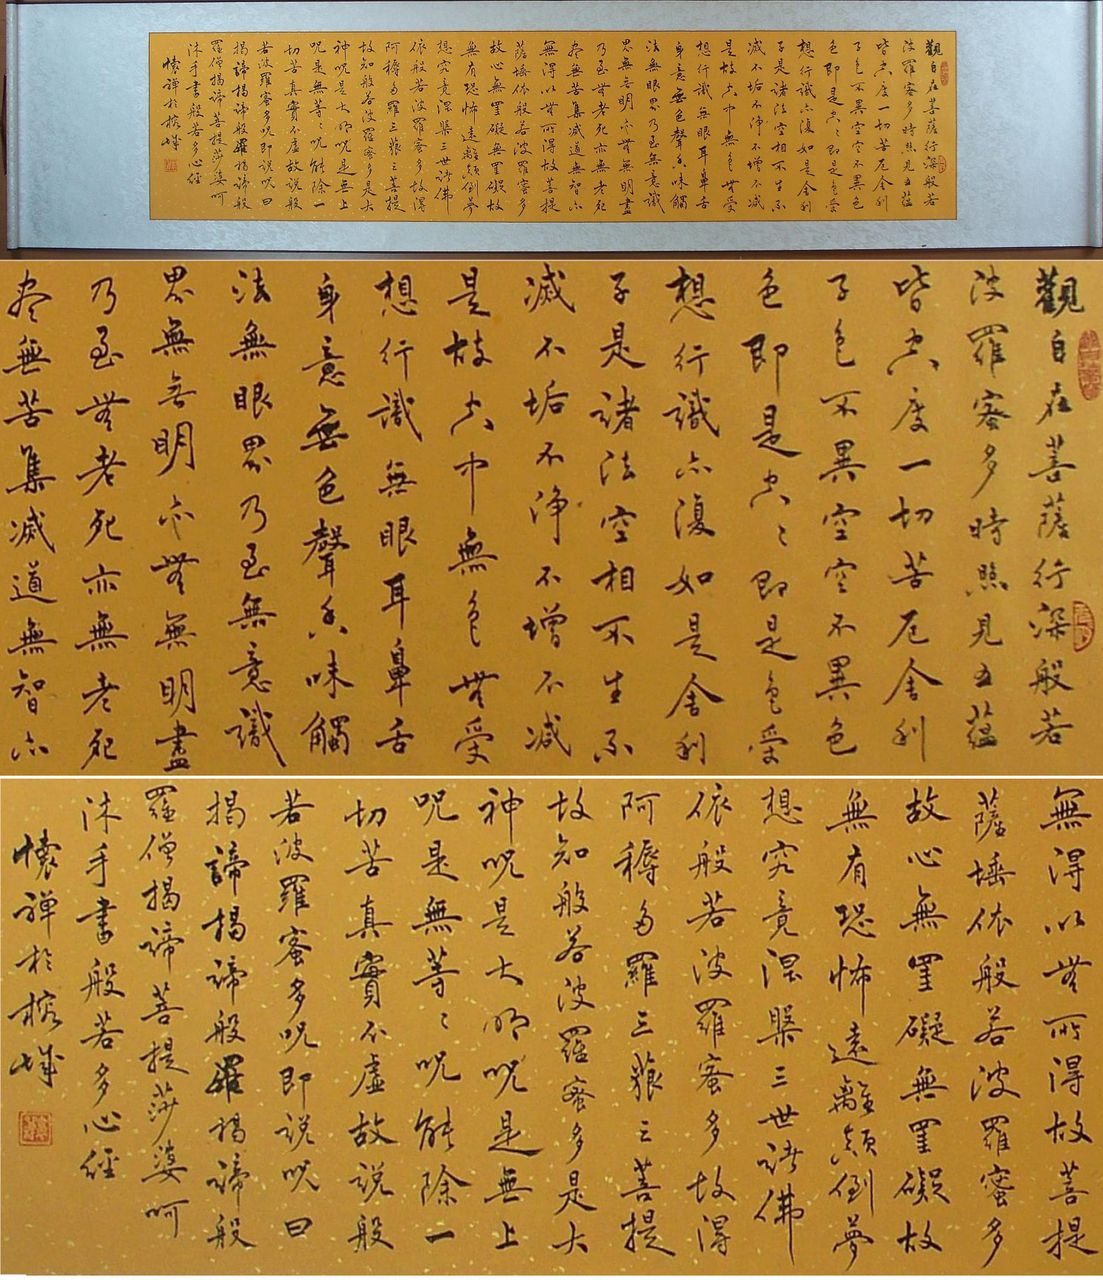 觀自在菩薩行深般若
波羅蜜多時照見五蘊
皆空度一切苦厄舍利
子色不異空空不異色
色即是空々即是色受
想行識亦復如是舍利
子是諸法空相不生不
滅不垢不淨不增不減
是故空中無色無受
想行識無眼耳鼻舌
身意無色聲香味觸
法無眼界乃至無意識
界無無明亦無無明盡
乃至無老死亦無老死
盡無苦集滅道無智亦
無得以無所得故菩提
薩埵依般若波羅蜜多
故心無罣礙無罣礙故
無有恐怖遠離顛倒夢
想究竟涅槃三世諸佛
依般若波羅蜜多故得
阿耨多羅三藐三菩提
故知般若波羅蜜多是大
神呪是大明呪是無上
呪是無等々呪能除一
切苦真實不虛故說般
若波羅蜜多呪即說呪曰
揭諦揭諦般羅揭諦般
羅僧揭諦菩提莎婆呵
沐手書般若多心經
懷禪於榕城